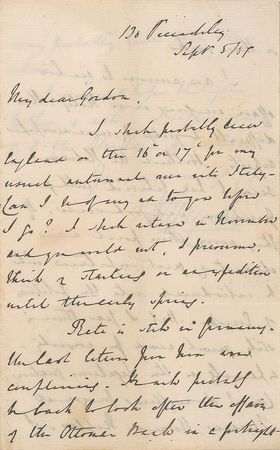 130 Piccadilly
Sept. 5/
My dear Gordon,
I shall probably leave
England on the 16th or 17th for my
usual autumnal run into Italy—
Can I be of any use to you before
I go? I shall return in November
and you would not, I presume,
think of starting on an expedition
until the early spring.
is still in Germany.
The last letters from him were
. He will probably
be back to look after the affairs
of the Ottoman Bank in a fortnight